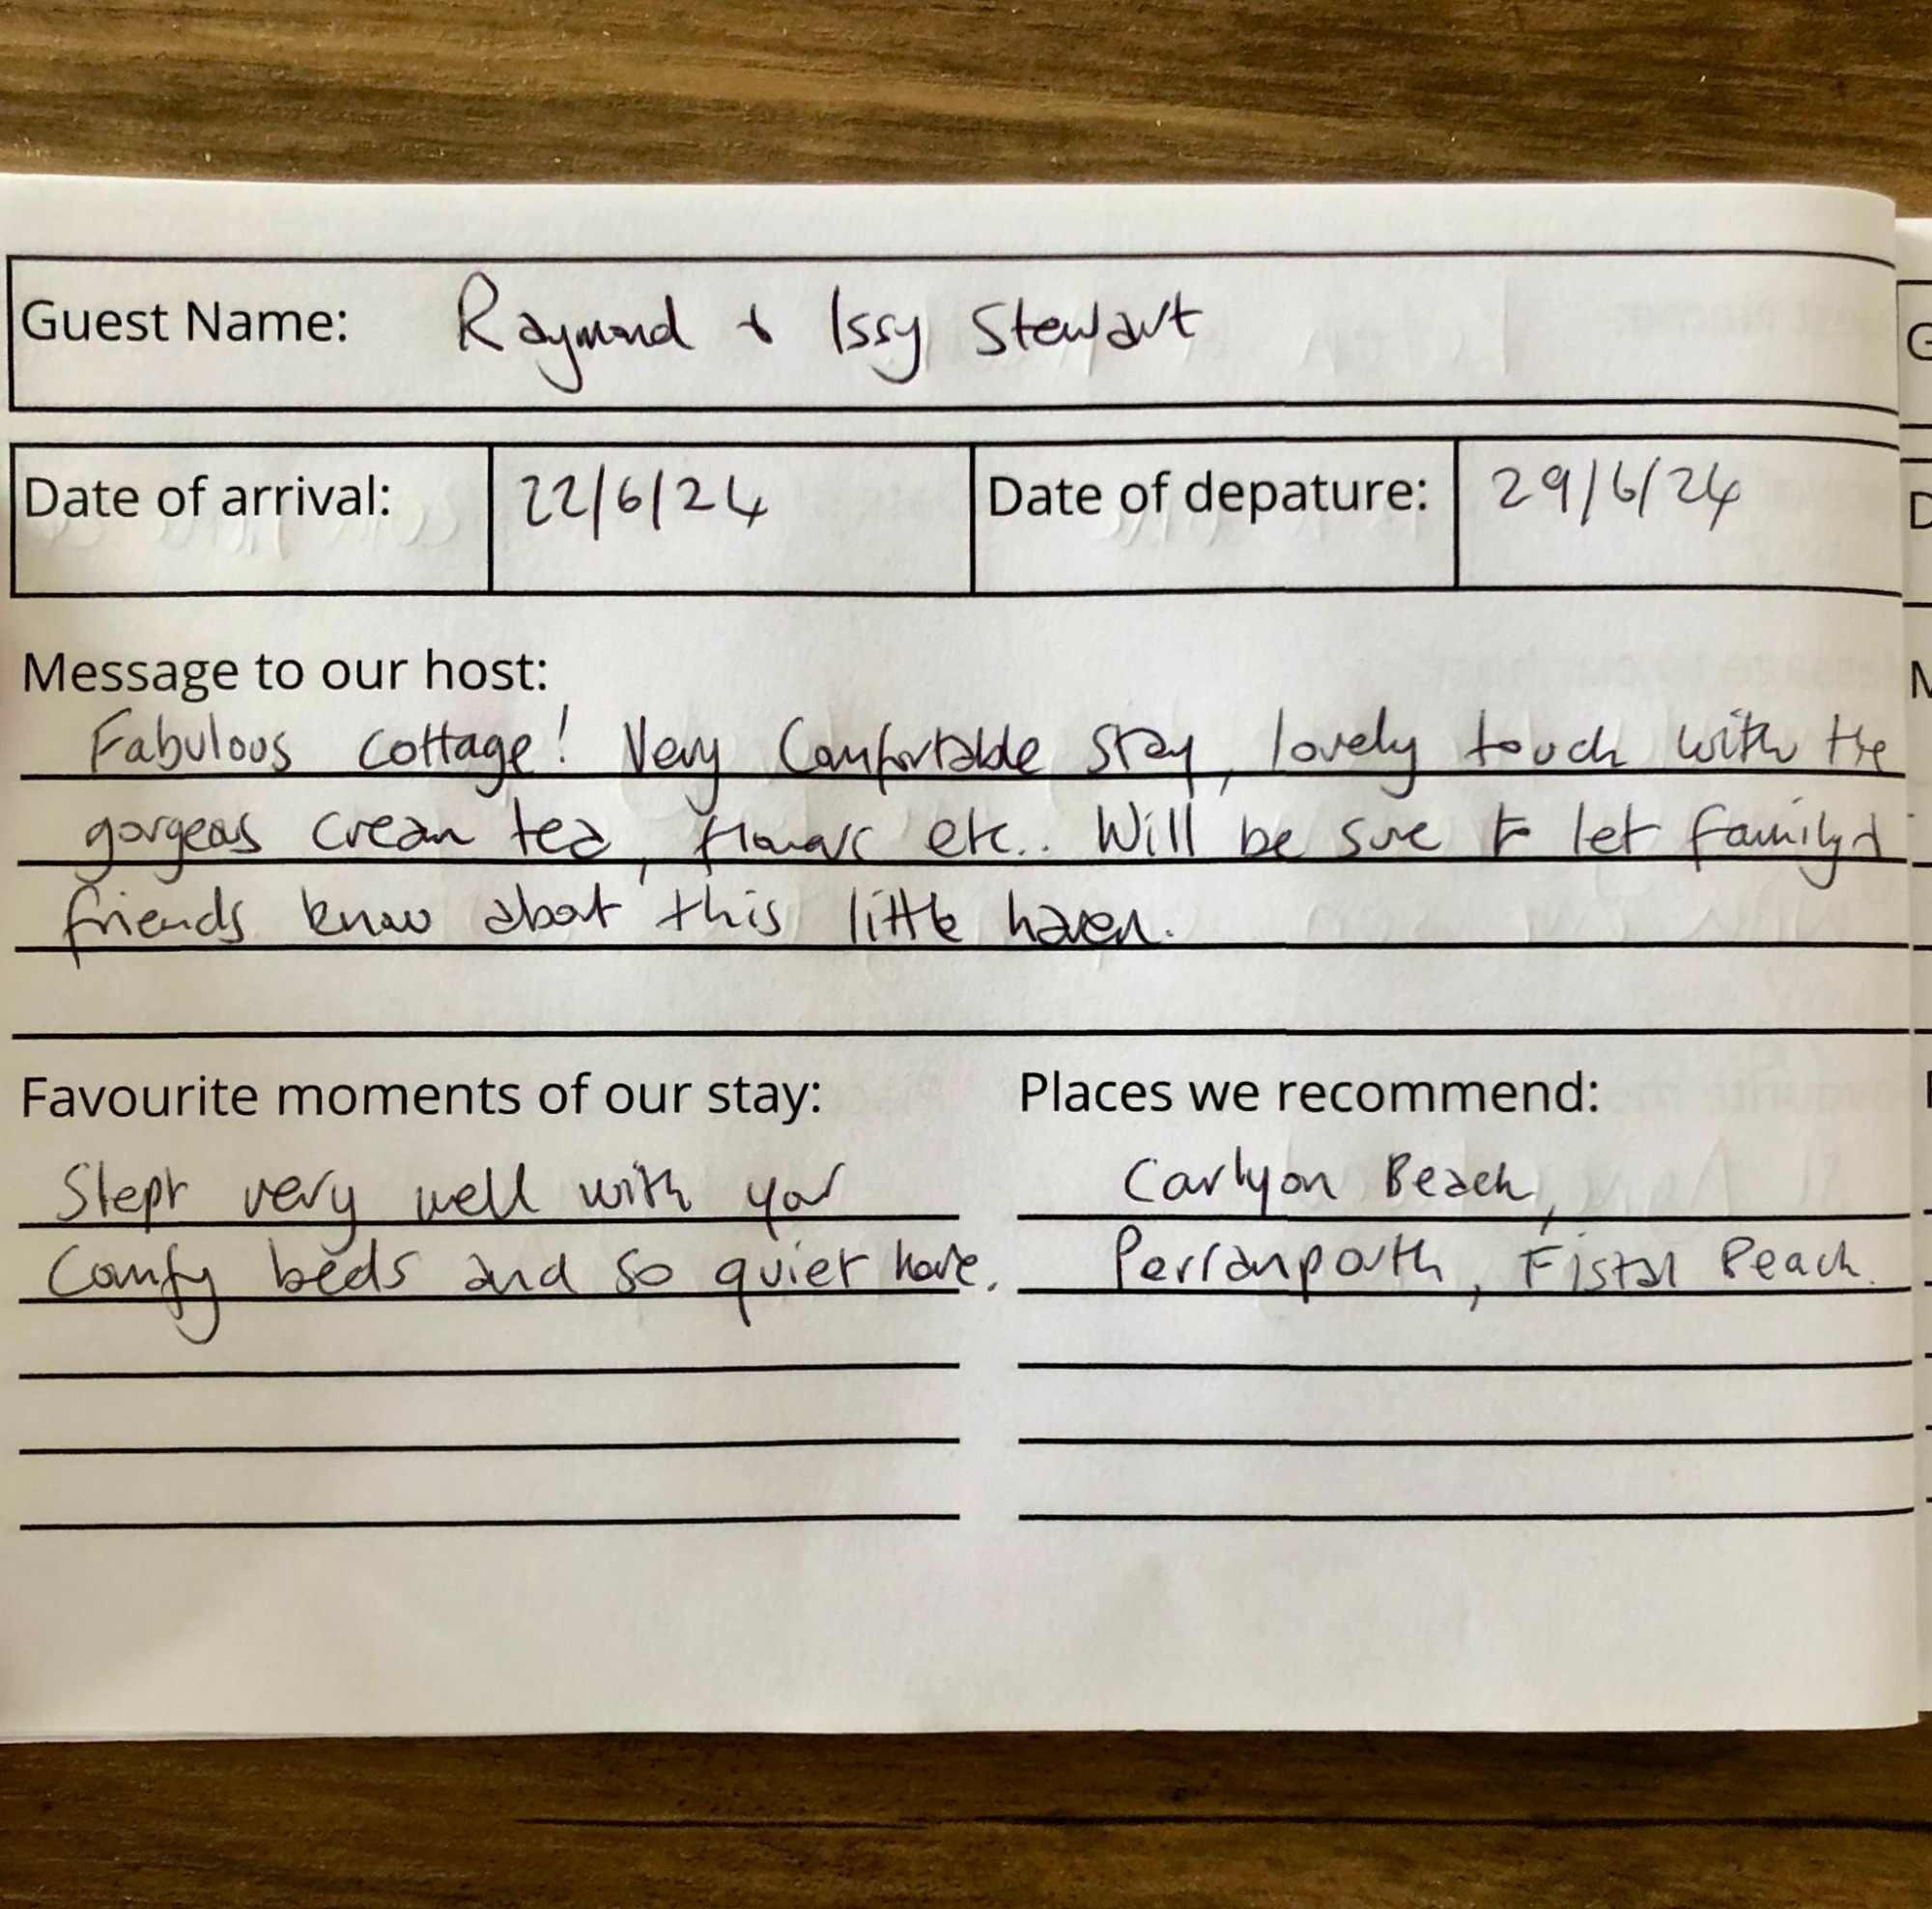 Guest Name: Raymond & Issy Stewart
Date of arrival: 22/6/24 Date of depature: 29/6/24
Message to our host:
Fabulous cottage! Very Comfortable stay, lovely touch with the
gorgeous cream tea, flowers etc.. Will be sure to let family &
friends know about this little haven.
Favourite moments of our stay:
Slept very well with your
Comfy beds and so quiet here.
Places we recommend:
Carlyon Beach,
Perranporth, Fistral Beach.